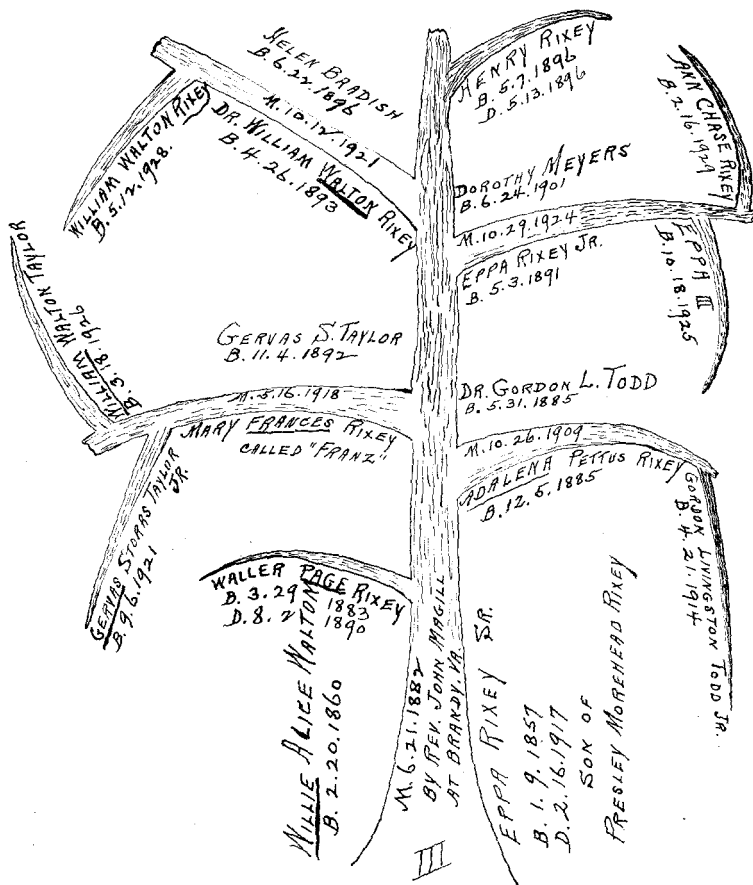 HELEN BRADISH
B. 6.22.1896
M. 10.12.1921
DR. WILLIAM WALTON RIXEY
B. 4.26.1893
WILLIAM WALTON RIXEY
B. 5.12.1928.
HENRY RIXEY
B. 5.7.1896
D. 5.13.1896
ANN CHASE RIXEY
B. 2.16.1929
DOROTHY MEYERS
B. 6.24.1901
M. 10.29.1924
EPPA RIXEY JR.
B. 5.3.1891
EPPA III
B. 10.18.1925
WILLIAM WALTON TAYLOR
B. 3.18.1926
GERVAS S. TAYLOR
B. 11.4.1892
M. 5.16.1918
MARY FRANCES RIXEY
CALLED "FRANZ"
GERVAS STORRS TAYLOR
JR.
B. 9.6.1921
DR. GORDON L. TODD
B. 5.31.1885
M. 10.26.1909
ADALENA PETTUS RIXEY
B. 12.5.1885
GORDON LIVINGSTON TODD JR.
B. 4.21.1914
WALLER PAGE RIXEY
B. 3.29 1883
D. 8.2 1890
WILLIE ALICE WALTON
B. 2.20.1860
M. 6.21.1882
BY REV. JOHN MAGILL
AT BRANDY, VA.
EPPA RIXEY SR.
B. 1.9.1857
D. 2.16.1917
SON OF
PRESLEY MOREHEAD RIXEY
III